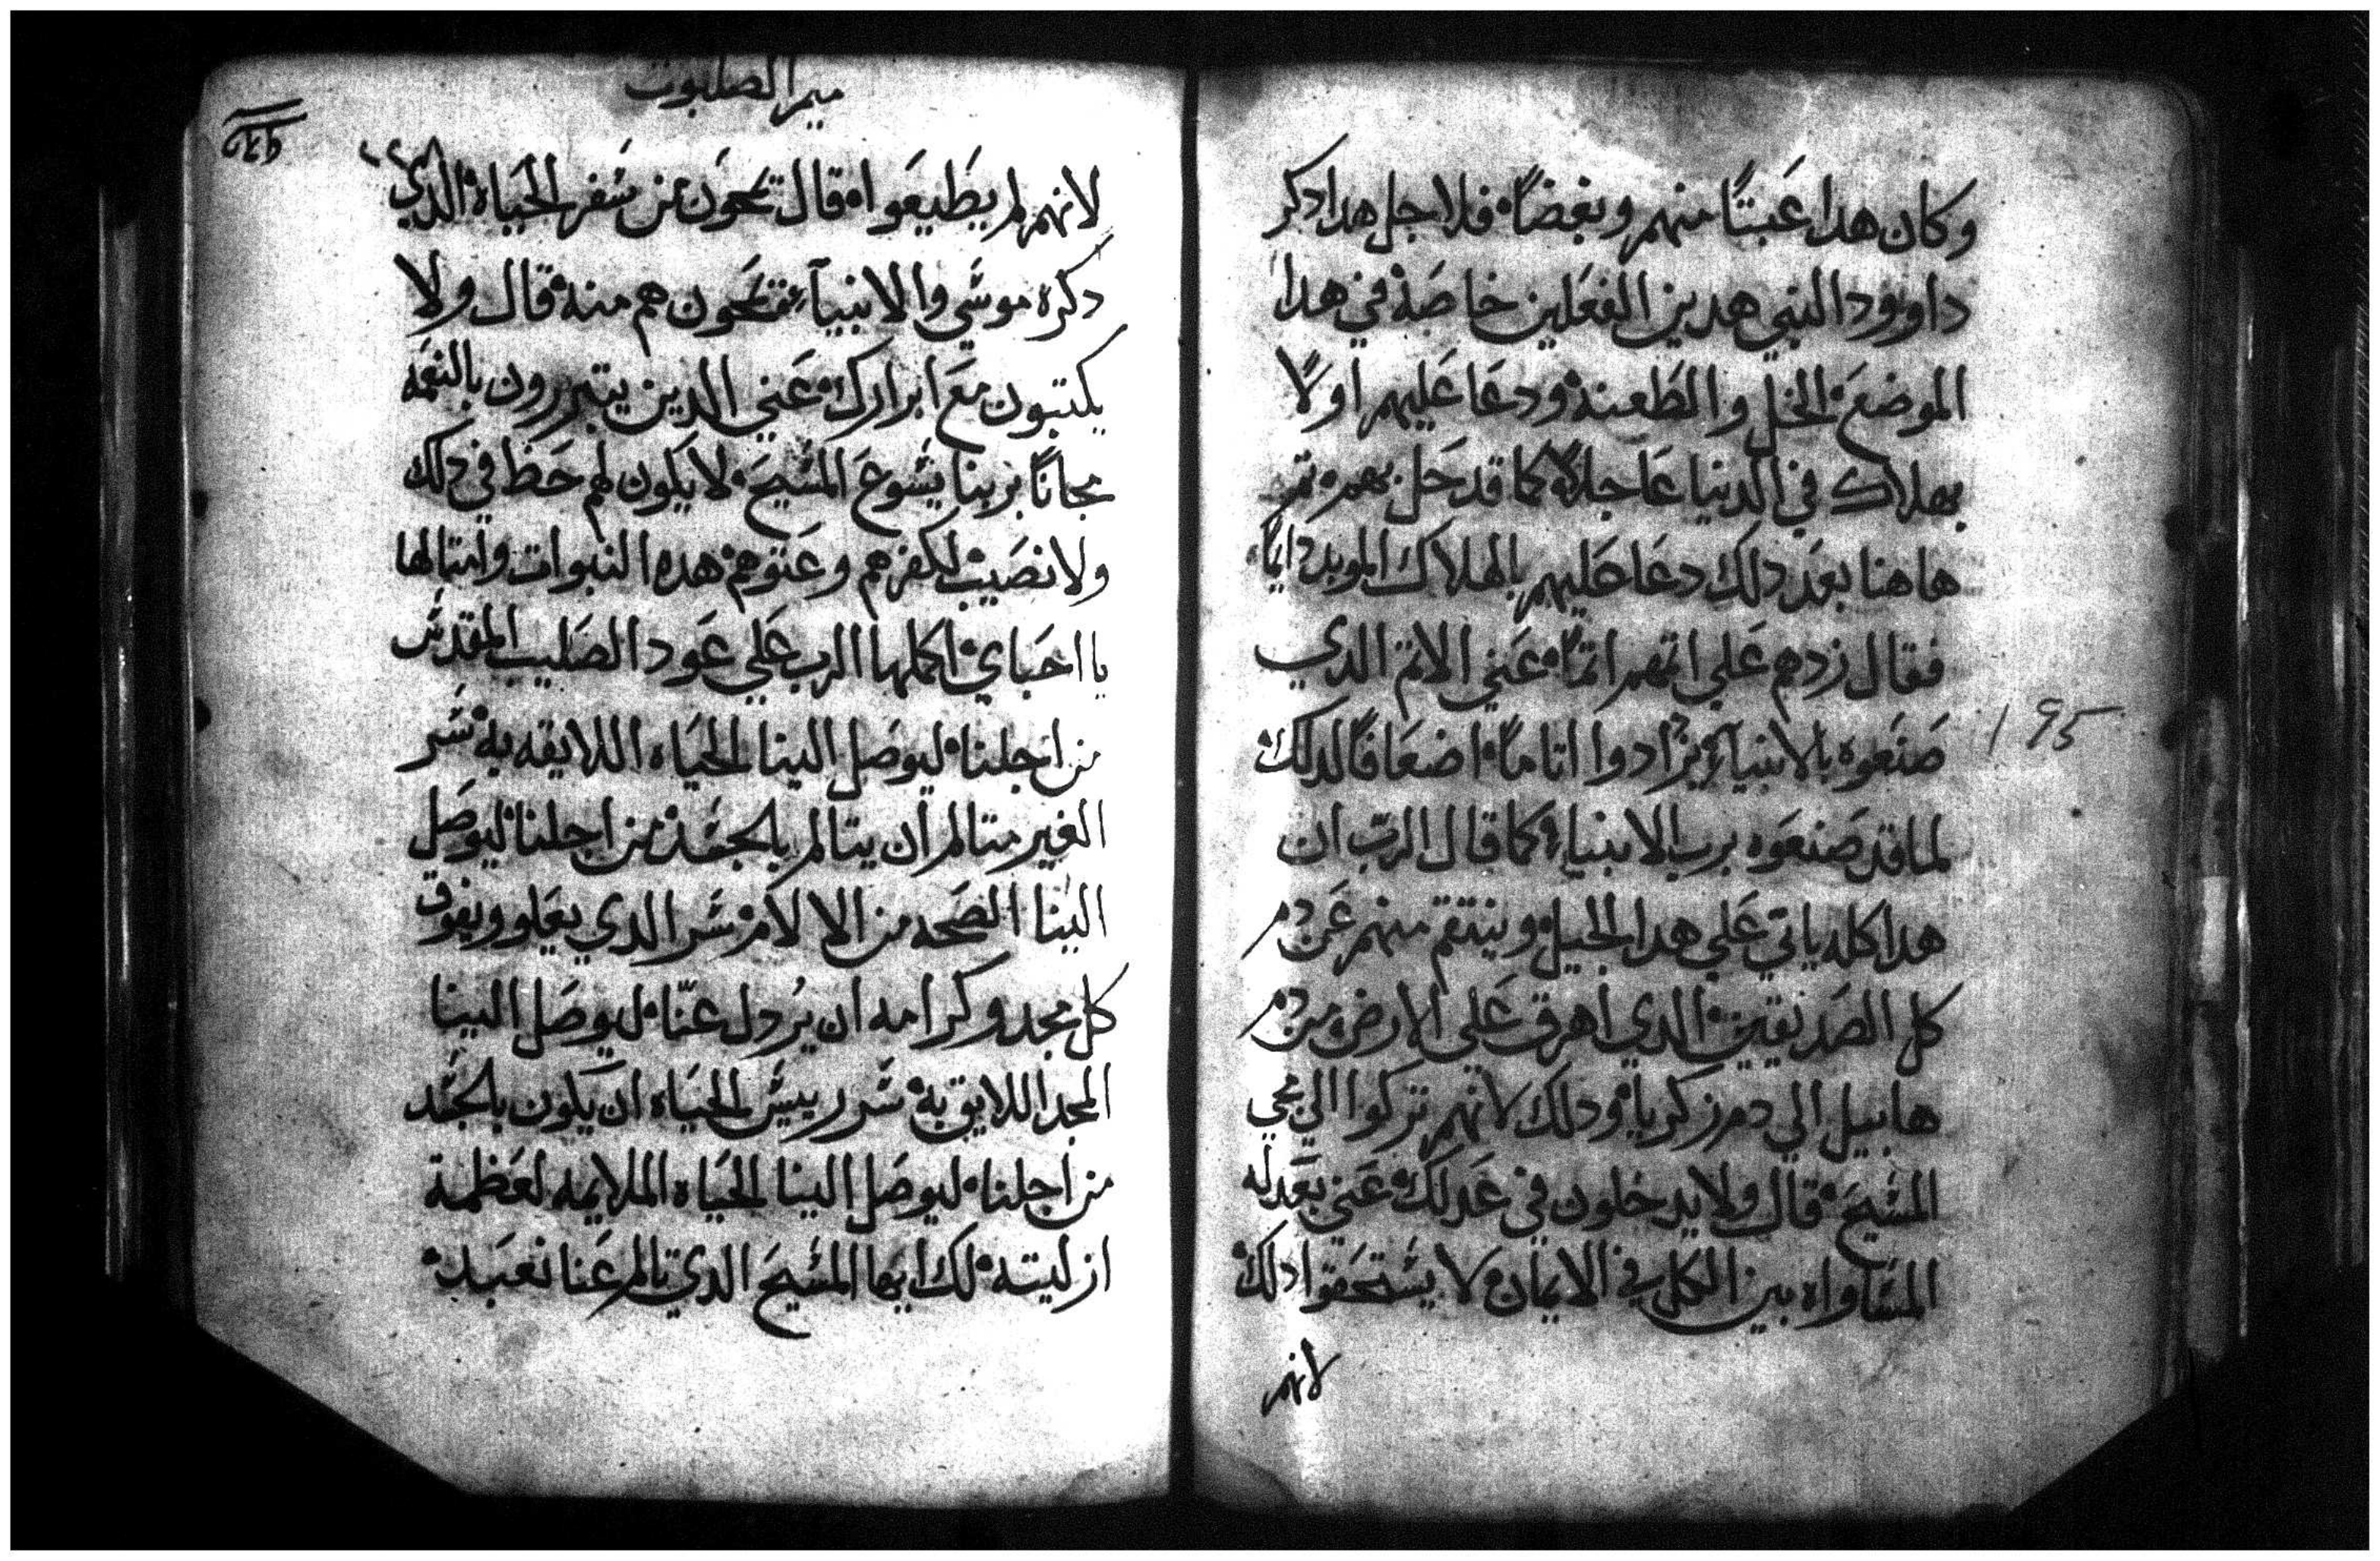 وكان هدا عَبتاً منهم وبغضاً فلاجل هدا دكر
داوود النبي هدين الفعَلين خاصَة في هدا
الموضعَ الخل والطَعنة ودعَا عَليهم اولاً
بهلاك في الدنيا عَاجلاً كما قد حَل بهم تم
هاهنا بعَد دلك دعَا عَليهم بالهلاك الموبد دايماً
فقال زدهم عَلي اتمهم اتماً عَني الاتم الدي
صَنعَوه بالانبيآء يزادوا اتاماً اضعَافاً لدلك
لما قد صَنعَوه برب الانبياء كما قال الربّ ان
هدا كله ياتي عَلي هدا الجيل وينتقم منهم عَن دم
كل الصَديقين الدي اهرق عَلي الارض من دم
هابيل الي دم زكريا ودلك لانهم تركوا الي مجي
المسَيحَ قال ولا يدخلون في عَدلك عَني بعَدله
المسَاواه بين الكل في الايمان لا يسَتحَقوا دلك
لانهم
195
ميمر الصلبوت
لانهم لم يطَيعَوا قال تمحَون من سَفر الحيَاة الدي
دكره موسَي والانبيآء فتمحَون هم منه قال ولا
يكتبون معَ ابرارك عَني الدين يتبررون بالنعَمه
مجاناً بربنا يسَوعَ المسَيحَ لا يكون لهم حَظ في دلك
ولا نصَيب لكفرهم وعَتوهم هده النبوات وامتالها
يا احَباي اكملها الرب عَلي عَود الصَليب المقدسَ
من اجلنا ليوصَل الينا الحيَاه اللايقه به سَر
الغير متالم ان يتالم بالجسَد من اجلنا ليوصَل
الينا الصَحه من الالام سَر الدي يعَلو ويفوق
كل مجد وكرامه ان يُردل عنّا ليوصَل الينا
المجد اللايق به سَر رييسَ الحيَاه ان يكون بالجسَد
من اجلنا ليوصَل الينا الحيَاه الملايمه لعَظمة
ازليته لك ايها المسَيحَ الدي تالم عَنا نعَبد